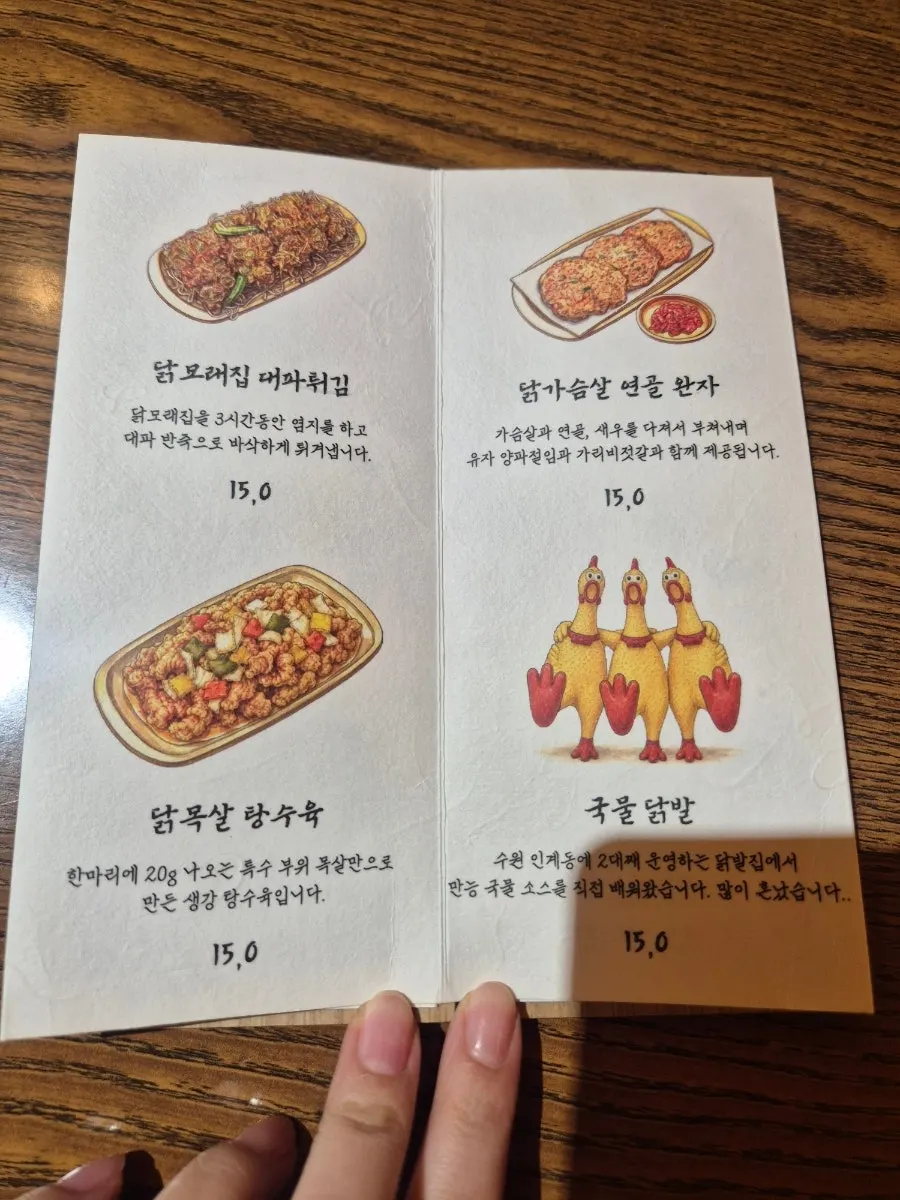 닭모래집 대파튀김
닭모래집을 3시간동안 염지를 하고
대파 반죽으로 바삭하게 튀겨냅니다.
15,0
닭목살 탕수육
한마리에 20g 나오는 특수 부위 목살만으로
만든 생강 탕수육입니다.
15,0
닭가슴살 연골 완자
가슴살과 연골, 새우를 다져서 부쳐내며
유자 양파절임과 가리비젓갈과 함께 제공됩니다.
15,0
국물 닭발
수원 인계동에 2대째 운영하는 닭발집에서
만능 국물 소스를 직접 배워왔습니다. 많이 혼났습니다..
15,0